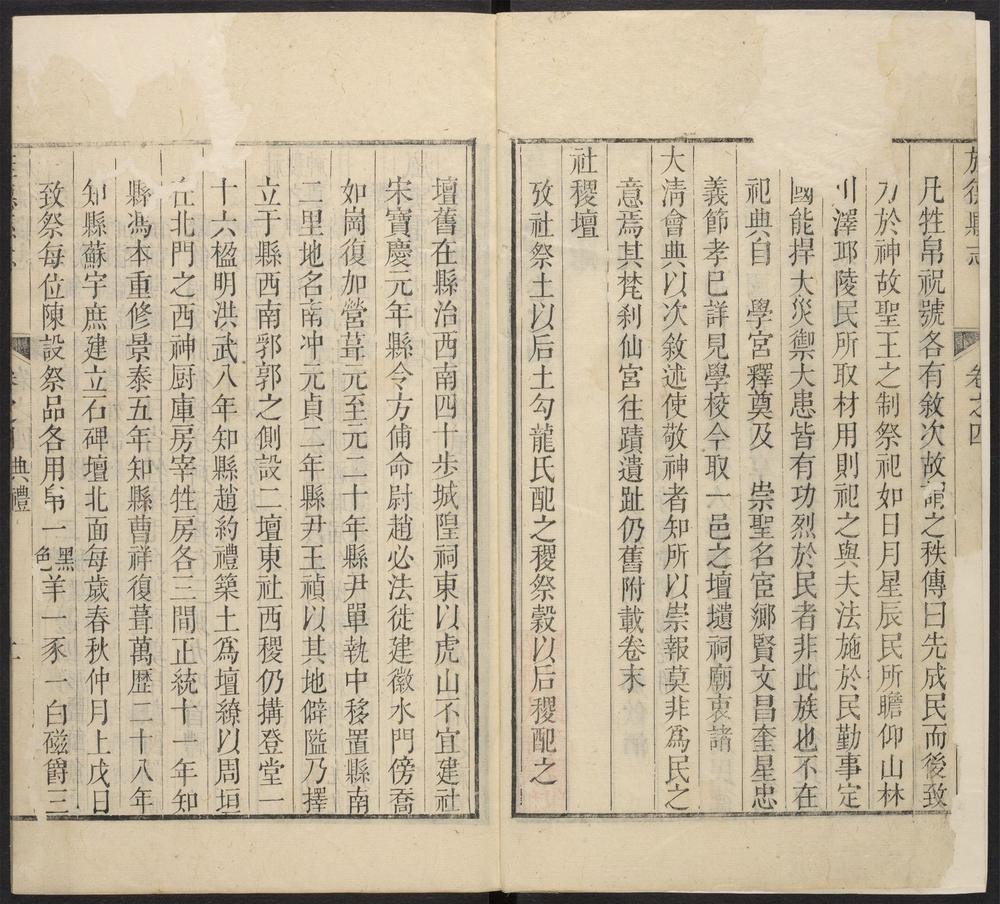 旌德縣志
卷之四
凡牲帛祝號各有敘次故謂之秩傳曰先成民而後致
力於神故聖王之制祭祀如日月星辰民所瞻仰山林
川澤邱陵民所取材用則祀之與夫法施於民勤事定
國能捍大災禦大患皆有功烈於民者非此族也不在
祀典自 學宮釋奠及 崇聖名宦鄉賢文昌奎星忠
義節孝已詳見學校今取一邑之壇壝祠廟裒諸
大清會典以次敘述使敬神者知所以崇報莫非為民之
意焉其梵剎仙宮往蹟遺趾仍舊附載卷末
社稷壇
攷社祭土以后土勾龍氏配之稷祭穀以后稷配之
壇舊在縣治西南四十步城隍祠東以虎山不宜建社
宋寶慶元年縣令方俌命尉趙必法徙建徽水門傍喬
如崗復加營葺元至元二十年縣尹單執中移置縣南
二里地名南冲元貞二年縣尹王禎以其地僻隘乃擇
立于縣西南郭郭之側設二壇東社西稷仍搆登堂一
十六楹明洪武八年知縣趙約禮築土爲壇繚以周垣
在北門之西神厨庫房宰牲房各三間正統十一年知
縣馮本重修景泰五年知縣曹祥復葺萬歷二十八年
知縣蘇宇庶建立石碑壇北面每歲春秋仲月上戊日
致祭每位陳設祭品各用帛一黑色羊一豕一白磁爵三
典禮
二